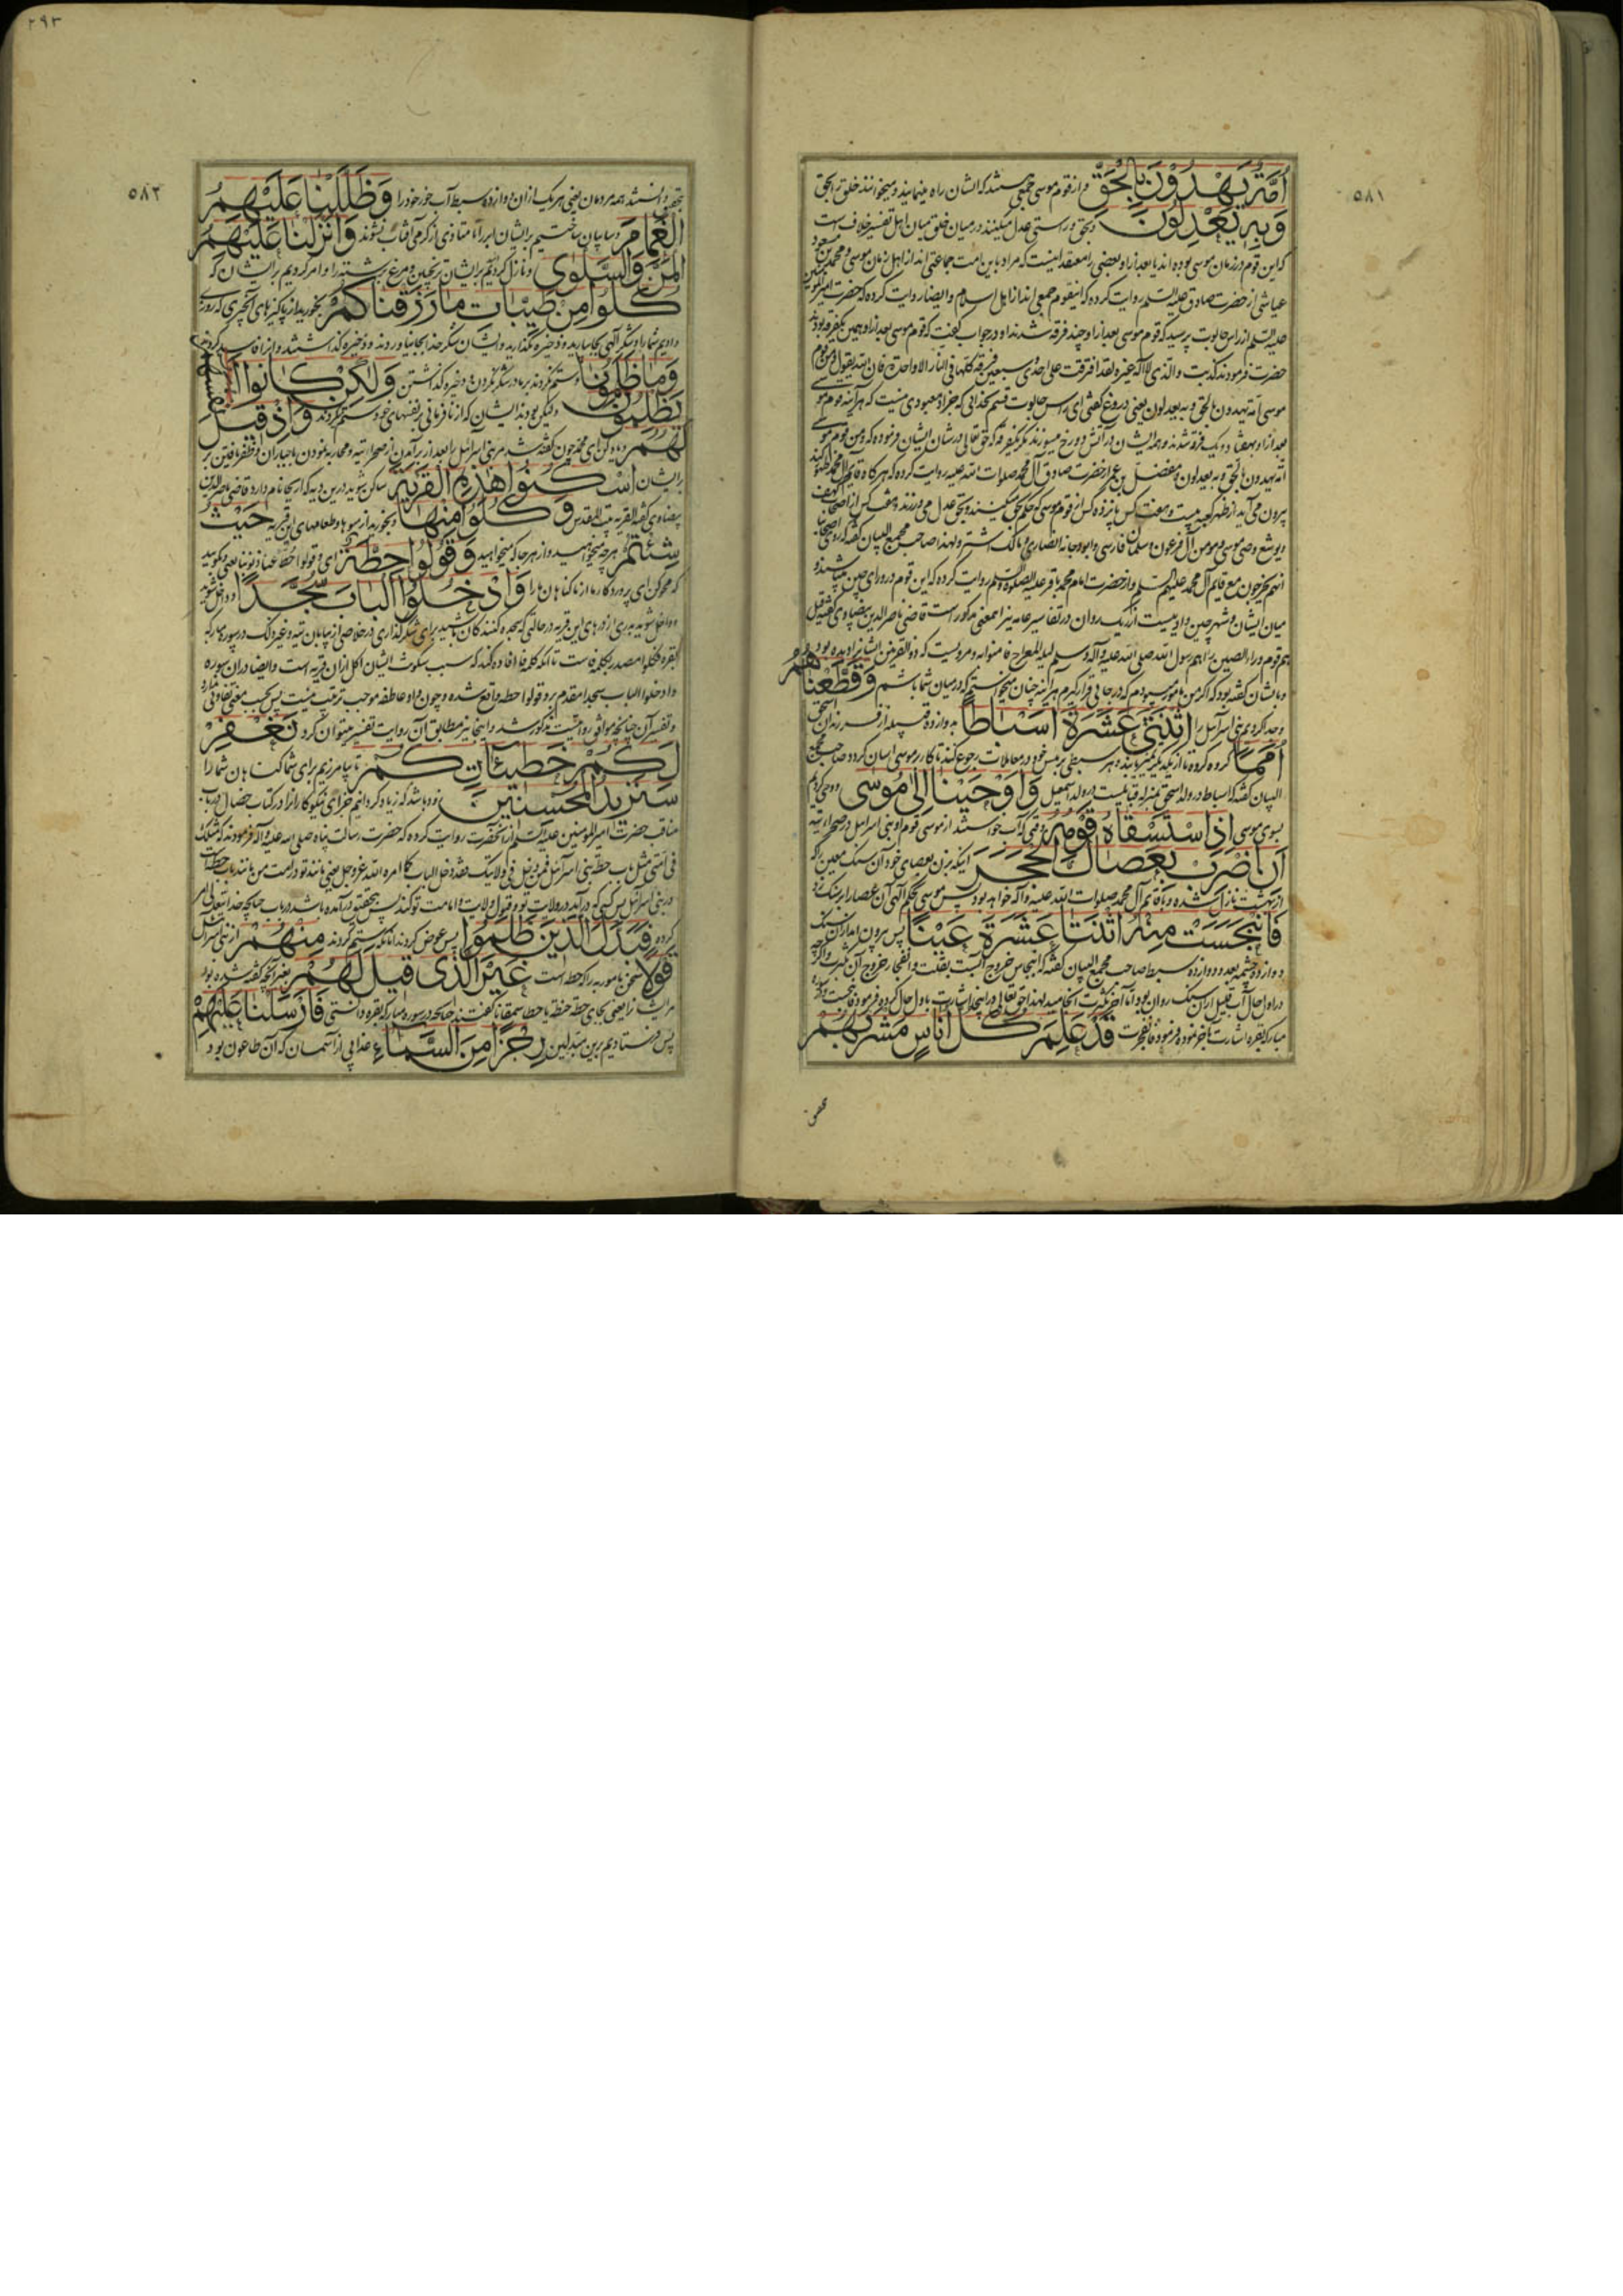 ٥٨١
أُمَّةٌ يَهْدُونَ بِالْحَقِّ و از قوم موسی جمعی هستند که ایشان راه مینمایند و میخوانند خلق را بحق
وَبِهِ يَعْدِلُونَ و بحق و راستی عدل میکنند در میان خلق میان اهل تفسیر خلاف است
که این قوم در زمان موسی بوده اند یا بعد از او بعضی را معتقد اینست که مراد باین امت جماعتی اند از اهل زمان موسی و
عیاشی از حضرت صادق علیه السلام روایت کرده که اینقوم جمعی اند از اهل اسلام و ایضا روایت کرده که حضرت امیر المومنین
علیه السلام از راس جالوت پرسید که قوم موسی بعد از او چند فرقه شدند او در جواب گفت که قوم موسی بعد از او همین یکفرقه بودند
حضرت فرمودند کذبت والذی لا اله غیره لقد افترقت علی احدی و سبعین فرقة کلها فی النار الا واحدة فان الله یقول و من قوم
موسی امة یهدون بالحق و به یعدلون یعنی دروغ گفتی ای راس جالوت قسم بخدائی که جز او معبودی نیست که هر آینه قوم موسی
بعد از او بهفتاد و یک فرقه شدند و همه ایشان در آتش دوزخ میسوزند مگر یکفرقه که حق تعالی در شان ایشان فرموده که و من قوم موسی
امة یهدون بالحق و به یعدلون و مفضل بن عمر از حضرت صادق آل محمد صلوات الله علیه روایت کرده که هرگاه قایم آل محمد
بیرون می آید از ظهر کعبه بیست و هفت کس پانزده کس از قوم موسی که حکم بحق میکنند و بحق عدل می ورزند و هفت کس از اصحاب کهف
و یوشع وصی موسی و مومن آل فرعون و سلمان فارسی و ابودجانه انصاری و مالک اشتر و لهذا صاحب مجمع البیان گفته که روی اصحابنا
انهم یخرجون مع قایم آل محمد علیهم السلام و از حضرت امام محمد باقر علیه الصلوة والسلام روایت کرده که این قوم در ورای چین میباشند و
میان ایشان و شهر چین وادییست از ریک روان و در تفاسیر عامه نیز اینمعنی مذکور است قاضی ناصر الدین بیضاوی گفته قیل
هم قوم وراء الصین رآهم رسول الله صلی الله علیه وآله وسلم لیلة المعراج فآمنوا به و مرویست که ذوالقرنین ایشانرا دیده بود
و بایشان گفته بود که اگر من مامور میبودم که در جائی قرار گیرم هر آینه چنان میخواستم که در میان شما باشم وَقَطَّعْنَاهُمُ
و جدا کردیم بنی اسرائیل را اثْنَتَيْ عَشْرَةَ أَسْبَاطًا به دوازده قبیله از فرزندان اسحق
أُمَمًا گروه گروه تا از یکدیگر متمیز باشند و هر سبطی بر رئیس خود در معاملات رجوع کنند تا کار بر موسی آسان گردد صاحب مجمع
البیان گفته که اسباط در ولد اسحق بمنزله قبایلست در ولد اسمعیل وَأَوْحَيْنَا إِلَىٰ مُوسَىٰ و وحی کردیم
بسوی موسی إِذِ اسْتَسْقَاهُ قَوْمُهُ وقتی که آب خواستند از موسی قوم او بنی اسرائیل در صحراء تیه
أَنِ اضْرِبْ بِعَصَاكَ الْحَجَرَ اینکه بزن بعصای خود آن سنک معین را که
از بهشت نازل شده و با قایم آل محمد صلوات الله علیه وآله خواهد بود پس موسی بحکم آلهی آن عصا را بر سنک زد
فَانْبَجَسَتْ مِنْهُ اثْنَتَا عَشْرَةَ عَيْنًا پس بیرون آمد از آن سنک
دوازده چشمه بعدد دوازده سبط صاحب مجمع البیان گفته که انبجاس خروج آبست بقلت و انفجار خروج آن بکثرت و اگرچه
در اول حال آب قلیل از آن سنک روان بود اما آخر بکثرت انجامید لهذا حق تعالی در اینجا اشارت باول حال کرده و فرمود فانبجست و در سوره
مبارکه بقره اشارت بآخر نموده فرمود فانفجرت قَدْ عَلِمَ كُلُّ أُنَاسٍ مَشْرَبَهُمْ
٢٩٣
٥٨٢
بتحقیق دانستند همه مردمان یعنی هر یک از آن دوازده سبط آب خور خود را وَظَلَّلْنَا عَلَيْهِمُ
الْغَمَامَ و سایبان ساختیم بر ایشان ابر را تا متاذی از گرمی آفتاب نشوند وَأَنْزَلْنَا عَلَيْهِمُ
الْمَنَّ وَالسَّلْوَىٰ و نازل کردیم بر ایشان ترنجبین و مرغ برشته را و امر کردیم بر ایشان که
كُلُوا مِنْ طَيِّبَاتِ مَا رَزَقْنَاكُمْ بخورید از پاکیزهای آنچیزی که روزی
دادیم شما را و شکر آلهی بجا بیارید و ذخیره مگذارید و ایشان شکر خدا بجا نیاوردند و ذخیره گذاشتند
وَمَا ظَلَمُونَا و ستم نکردند بر ما در شکر نکردن و ذخیره گذاشتن وَلَٰكِنْ كَانُوا أَنْفُسَهُمْ
يَظْلِمُونَ و لیکن بودند ایشان که از نافرمانی بر نفسهای خود ستم کردند وَإِذْ قِيلَ
لَهُمُ و یاد کن ای محمد چون گفته شد مر بنی اسرائیل را بعد از بر آمدن از صحراء تیه و محاربه نمودن با جباران و ظفر یافتن بر
ایشان اسْكُنُوا هَٰذِهِ الْقَرْيَةَ ساکن شوید درین دیه که اریحا نام دارد قاضی ناصر الدین
بیضاوی گفته القریة بیت المقدس وَكُلُوا مِنْهَا و بخورید از میوها و طعامهای این قریه حَيْثُ
شِئْتُمْ هرچه میخواهید و از هرجا که میخواهید وَقُولُوا حِطَّةٌ ای قولوا حط عنا ذنوبنا یعنی و بگویید
که محو کن ای پروردگار ما از ما گناهان ما را وَادْخُلُوا الْبَابَ سُجَّدًا و داخل شوید
و داخل شوید بدری از درهای این قریه در حالتی که سجده کنندگان باشید برای شکر گذاری در خلاصی از بیابان تیه و غیر ذلک و در سوره مبارکه
البقره فکلوا مصدر بکلمه فاست تا آنکه کلمه فا افاده کند که سبب سکونت ایشان اکل از آن قریه است و ایضا در آن سوره
وادخلوا الباب سجدا مقدم بر و قولوا حطة واقع شده و چون واو عاطفه موجب ترتیب نیست پس بحسب معنی تفاوتی ندارد
و تفسیر آن چنانچه موافق روایتست مذکور شد و اینجا نیز مطابق آن روایت تفسیر میتوان کرد نَغْفِرْ
لَكُمْ خَطِيئَاتِكُمْ تا بیامرزیم برای شما گناهان شما را
سَنَزِيدُ الْمُحْسِنِينَ زود باشد که زیاد گردانیم جزای نیکوکارانرا در کتاب خصال در باب
مناقب حضرت امیر المومنین علیه السلام از آنحضرت روایت کرده که حضرت رسالت پناه صلی الله علیه وآله فرمودند که مثلک
فی امتی مثل باب حطة فی بنی اسرائیل فمن دخل فی ولایتک فقد دخل الباب کما امره الله عز وجل یعنی مانند تو در امت من مانند باب حطه است
در بنی اسرائیل پس کسی که در آید در ولایت تو و قبول ولایت و امامت تو کند پس بتحقیق در آمده باشد در باب چنانچه خدا تعالی امر
کرده فَبَدَّلَ الَّذِينَ ظَلَمُوا پس عوض کردند آنانکه ستم کردند مِنْهُمْ از بنی اسرائیل
قَوْلًا سخن مامور به را که حطه است غَيْرَ الَّذِي قِيلَ لَهُمْ بغیر آنچه گفته شده بود
مر ایشان را یعنی بجای حطه حنطه یا حطا سمقاتا گفتند چنانچه در سوره مبارکه بقره دانستی فَأَرْسَلْنَا عَلَيْهِمْ
پس فرستادیم برین مبدلین رِجْزًا مِنَ السَّمَاءِ عذابی از آسمان که آن طاعون بود